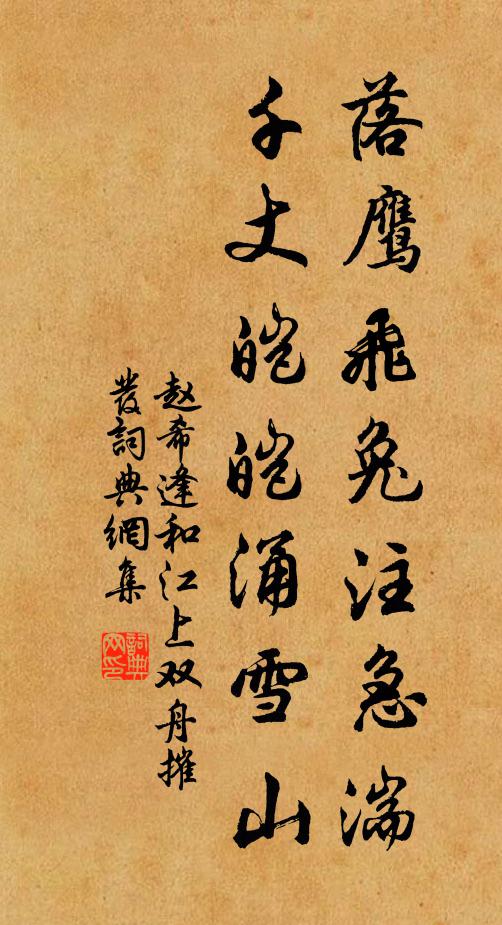 落鹰飛兔注急湍
千丈皑皑涌雪山
赵希逢和江上双舟摧
發詞典網集
詞典
网印